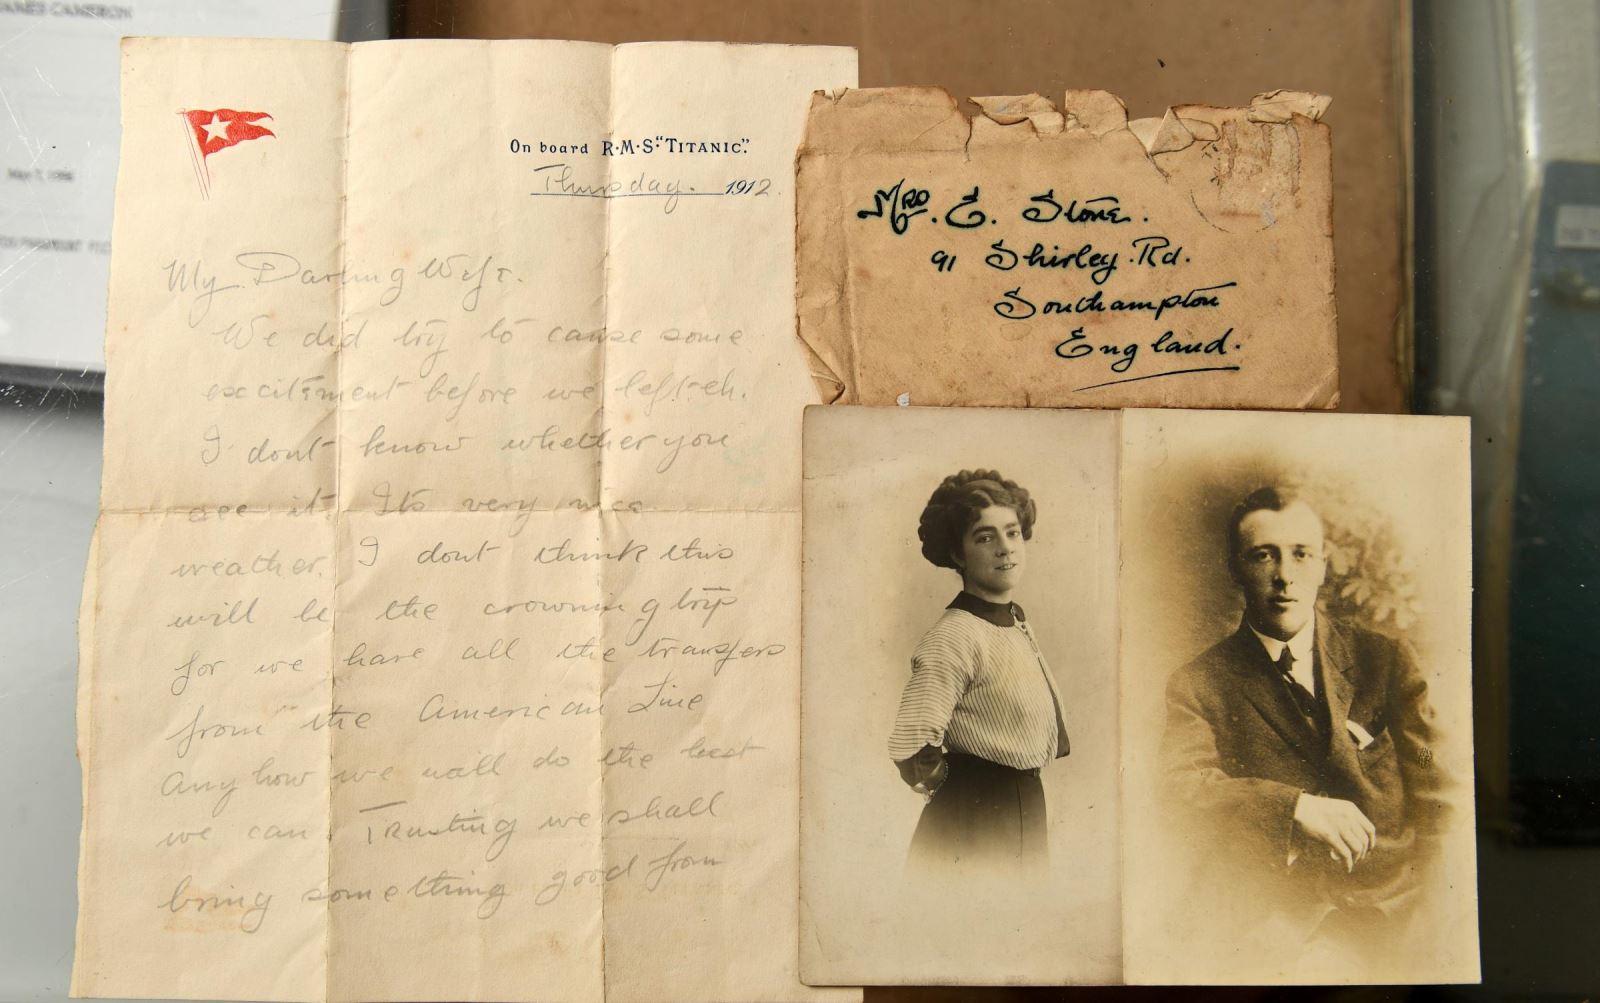 JAMES CAMERON
On board R·M·S·"TITANIC".
Thursday. 1912.
My Darling Wife.
We did try to cause some
excitement before we left-eh.
I dont know whether you
see it. Its very nice
weather. I dont think this
will be the crowning trip
for we have all the transfers
from the American Line
Anyhow we will do the best
we can. Trusting we shall
bring something good from
Mrs. E. Stone.
91 Shirley Rd.
Southampton
England.